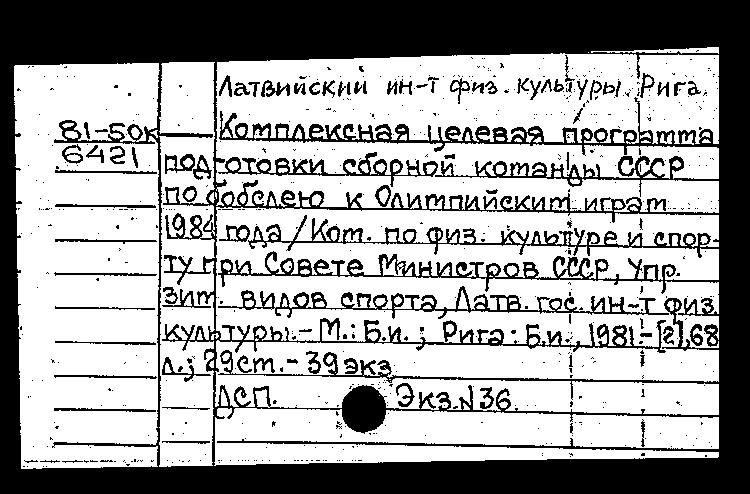 Латвийский ин-т физ. культуры. Рига.
81-50к Комплексная целевая программа
6421 подготовки сборной команды СССР
по бобслею к Олимпийским играм
1984 года / Ком. по физ. культуре и спор-
ту при Совете Министров СССР, Упр.
зим. видов спорта, Латв. гос. ин-т физ.
культуры. - М.: Б.и. ; Рига: Б.и., 1981. - [2], 68
л.; 29см. - 39 экз.
ДСП. Экз. N 36.